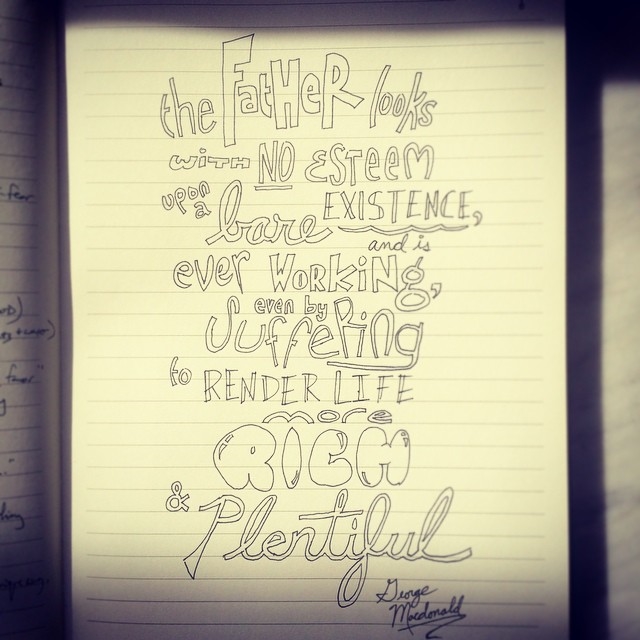 the FatHeR looks
with NO ESTEEM
upon a bare EXISTENCE,
and is
ever WORKiNg,
even by
SuffeRing
to RENDER LIFE
more
RICH
& Plentiful
George
Macdonald
fear
fear"